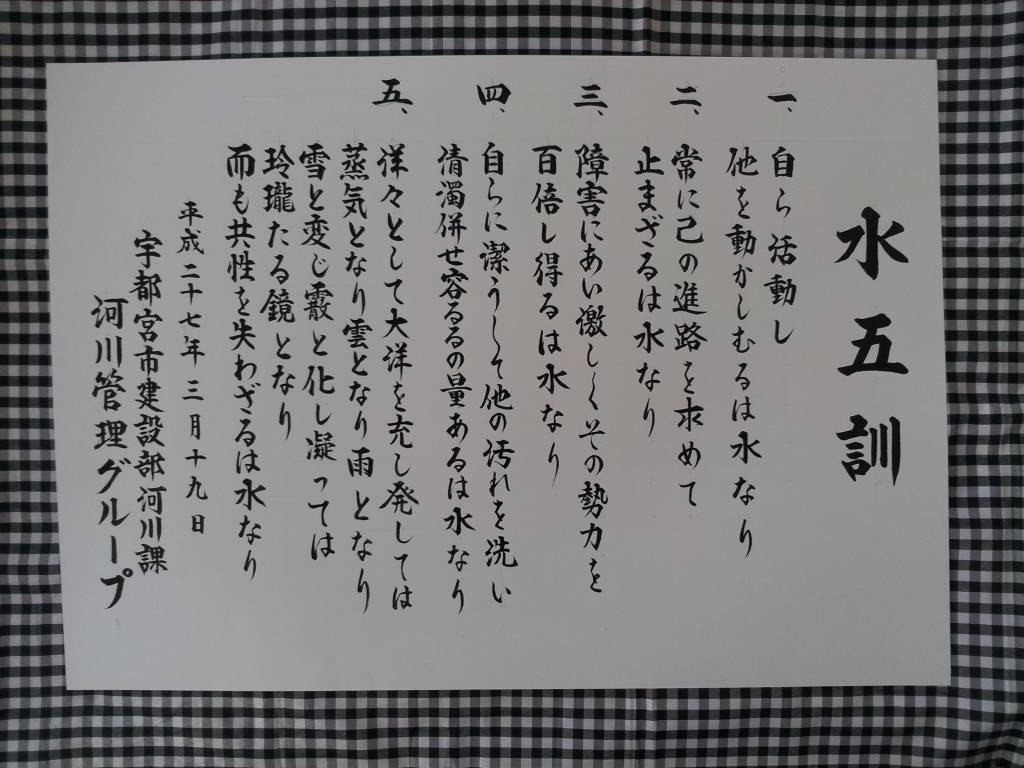 水五訓
一、自ら活動し
他を動かしむるは水なり
二、常に己の進路を求めて
止まざるは水なり
三、障害にあい激しくその勢力を
百倍し得るは水なり
四、自らに潔うして他の汚れを洗い
清濁併せ容るるの量あるは水なり
五、洋々として大洋を充し発しては
蒸気となり雲となり雨となり
雪と変じ霰と化し凝っては
玲瓏たる鏡となり
而も其性を失わざるは水なり
平成二十七年三月十九日
宇都宮市建設部河川課
河川管理グループ